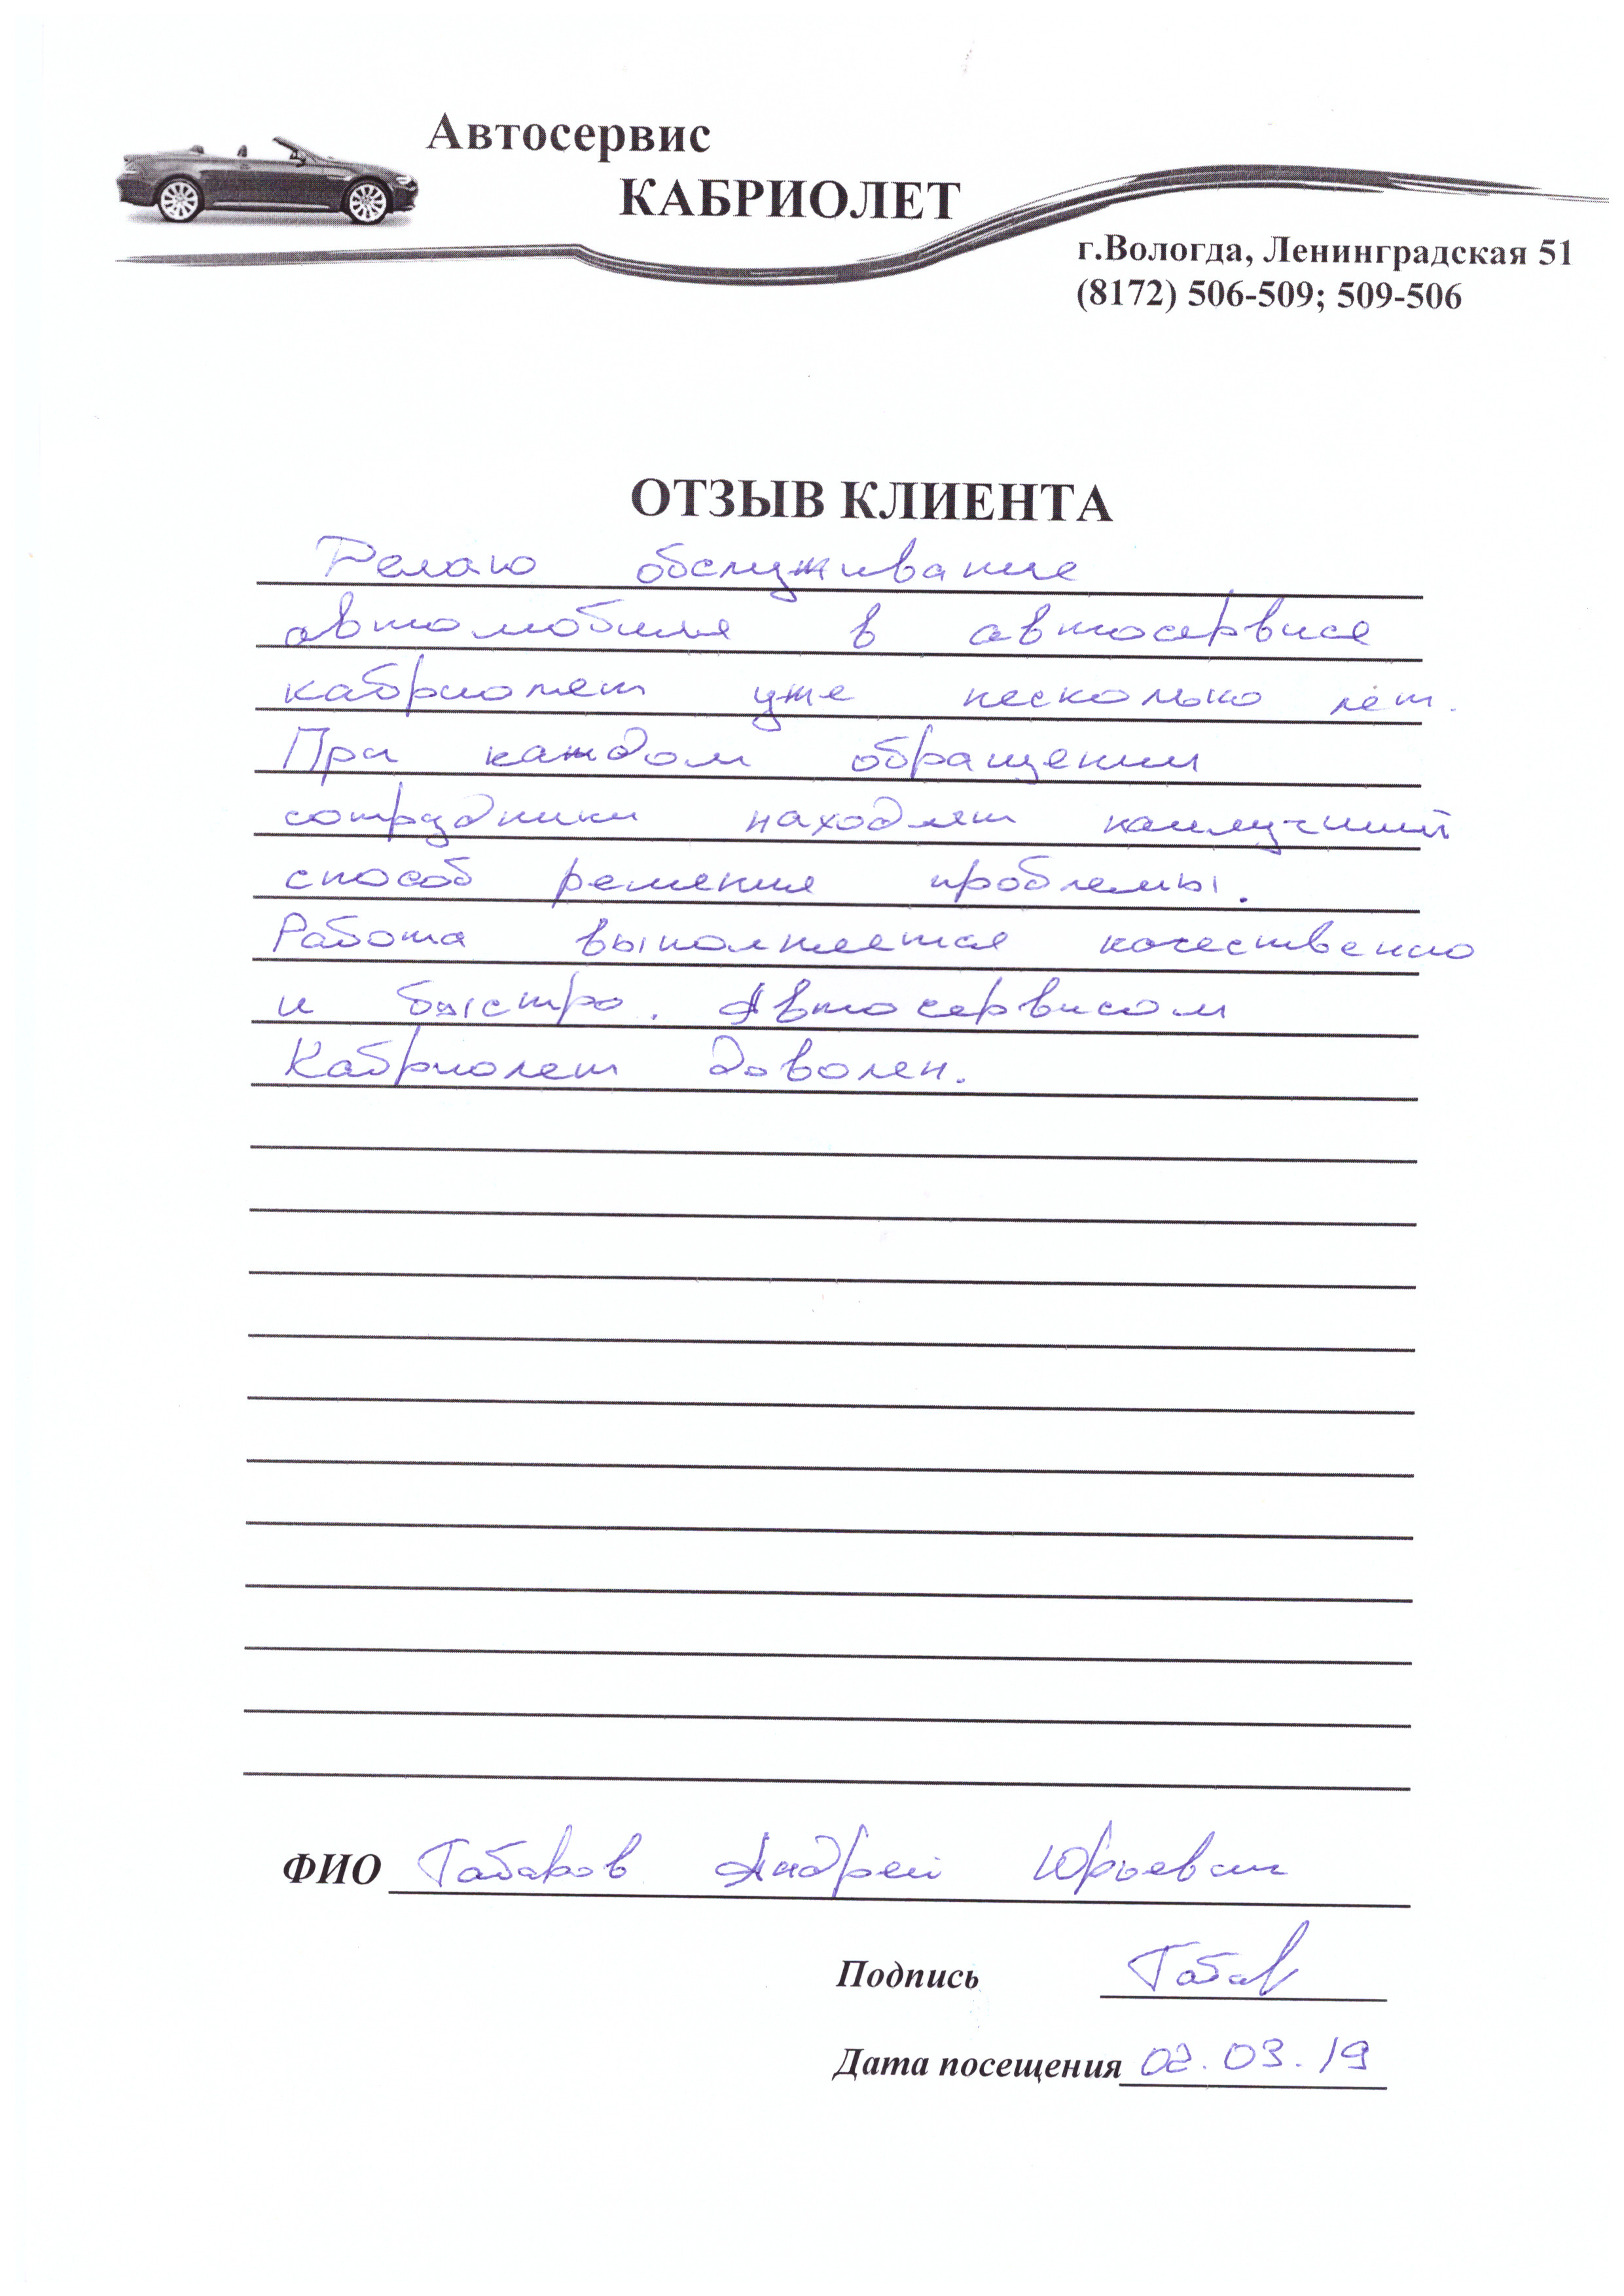 Автосервис
КАБРИОЛЕТ
г.Вологда, Ленинградская 51
(8172) 506-509; 509-506
ОТЗЫВ КЛИЕНТА
Делаю обслуживание
автомобиля в автосервисе
кабриолет уже несколько лет.
При каждом обращении
сотрудники находят наилучший
способ решения проблемы.
Работа выполняется качественно
и быстро. Автосервисом
Кабриолет доволен.
ФИО Табаков Андрей Юрьевич
Подпись Табак
Дата посещения 02.03.19